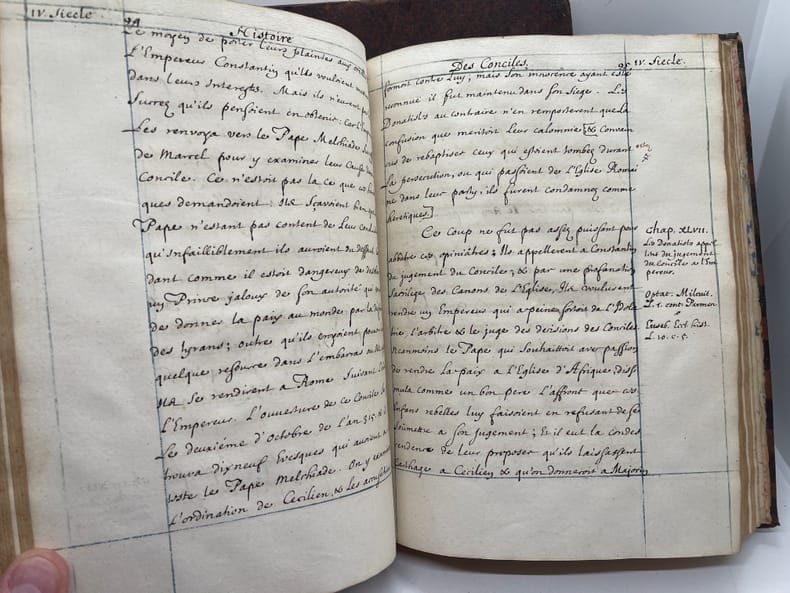 IV. Siecle.
94
Histoire
Le moyen de porter leurs plaintes aux
L'Empereur Constantin qu'ils vouloient
dans leurs Interests. Mais ils n'eurent
Succez qu'ils pensoient en obtenir: car
Les renvoya vers le Pape Melchiade
de Marcel pour y examiner leur Cause
Concile. Ce n'estoit pas la ce que
ques demandoient: Ils sçavoient bien
Pape n'estant pas content de Leur
qu'infailliblement ils auroient du
dant comme il estoit dangereux de
un Prince jaloux de son autorité
des donner la paix au monde par la
des tyrans; outre qu'ils croyoient
quelque resource dans l'embarras
Ils se rendirent a Rome suivant
L'Empereur. L'ouverture de ce Concile
Le deuxième d'Octobre de L'an 315.
trouva dix neuf Evesques qui avoient
teste le Pape Melchiade. On y
L'ordination de Cecilien, & Les
Des Conciles.
95
IV. Siecle.
formoit contre Luy; mais son innocence ayant esté
reconnue il fut maintenu dans son Siege. Les
Donatistes au contraire n'en remporterent que la
confusion que meritoit Leur calomnie [& convain
cus de rebaptiser ceux qui estoient tombez durant
La persecution, ou qui passoient de L'Eglise Romai
ne dans leur party, ils furent condamnez comme
heretiques.]
Ce coup ne fut pas assez puissant pour
abbatre ces opiniâtres; Ils appellerent a Constantin
du jugement du Concile; & par une profanation
Sacrilege des Canons de L'Eglise, Ils voulurent
rendre un Empereur qui a peine sortoit de L'Idola
trie, L'arbitre & le juge des decisions des Conciles
Neanmoins le Pape qui Souhaittoit avec passion
de rendre la paix a L'Eglise d'Afrique, dissi
mula comme un bon pere L'affront que ces
Enfans rebelles luy faisoient en refusant de se
Soumettre a son jugement; Et il eut la condes
cendence de leur proposer qu'ils laissassent
Carthage a Cecilien & qu'on donneroit a Majorin
Chap. XLVII.
Les donatistes appel
lent du jugement
du Concile a l'Em
pereur.
Optat. Milevit.
L. 1. cont. Parmen.
Euseb. Eccl. hist.
L. 10. c. 5.